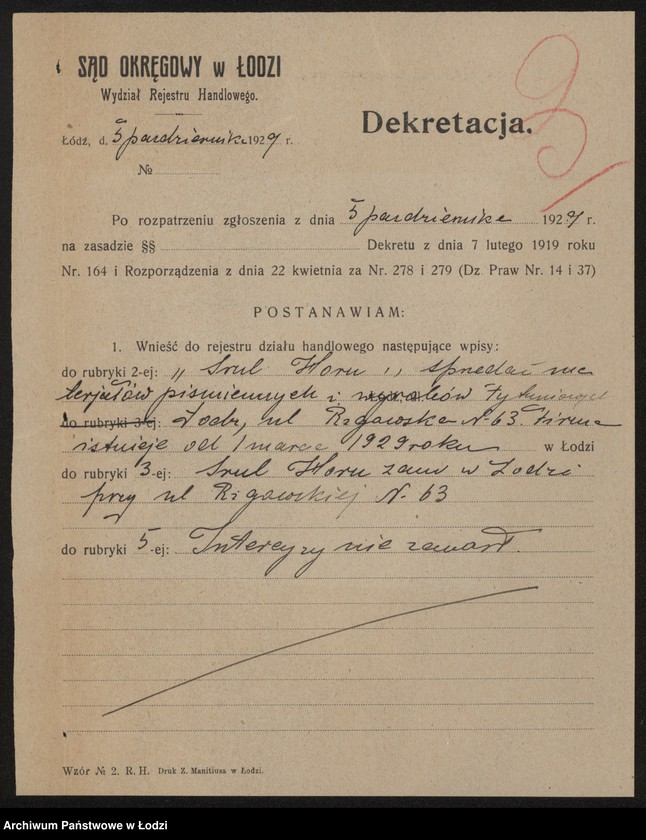 SĄD OKRĘGOWY w ŁODZI
Wydział Rejestru Handlowego.
3
Dekretacja.
Łódź, d. 5 października 1929 r.
№
Po rozpatrzeniu zgłoszenia z dnia 5 października 1929 r.
na zasadzie §§ Dekretu z dnia 7 lutego 1919 roku
Nr. 164 i Rozporządzenia z dnia 22 kwietnia za Nr. 278 i 279 (Dz. Praw Nr. 14 i 37)
POSTANAWIAM:
1. Wnieść do rejestru działu handlowego następujące wpisy:
do rubryki 2-ej: „Srul Horn", sprzedaż ma
terjałów piśmiennych i wyrobów Tytuniowych
do rubryki 3-ej: Łódź, ul Rzgowska N-63. Firma
istnieje od 1 marca 1929 roku w Łodzi
do rubryki 3-ej: Srul Horn zam w Łodzi
przy ul Rzgowskiej N- 63
do rubryki 5-ej: Intercyzy nie zawarł.
Wzór № 2. R. H. Druk Z. Manitiusa w Łodzi.
Archiwum Państwowe w Łodzi